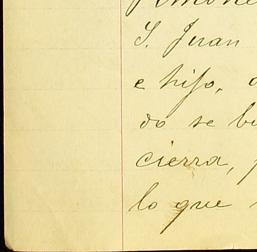 S. Juan
e hijo,
do se
cierra,
lo que